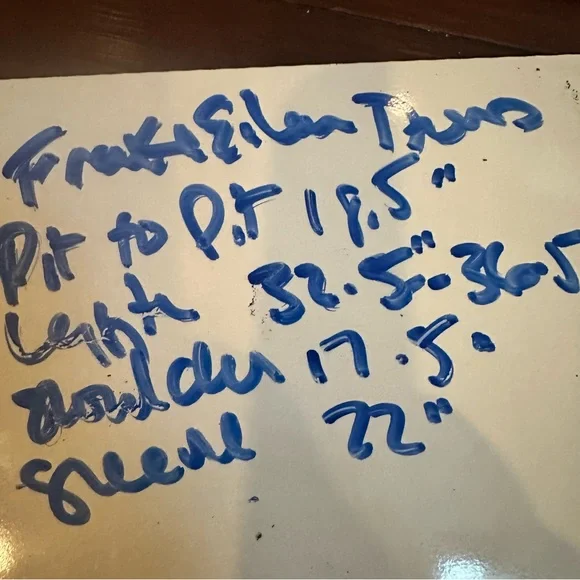 Frank & Eileen
Pit to Pit 19.5"
Length 32.5"-36.5
Shoulder 17.5"
Sleeve 22"